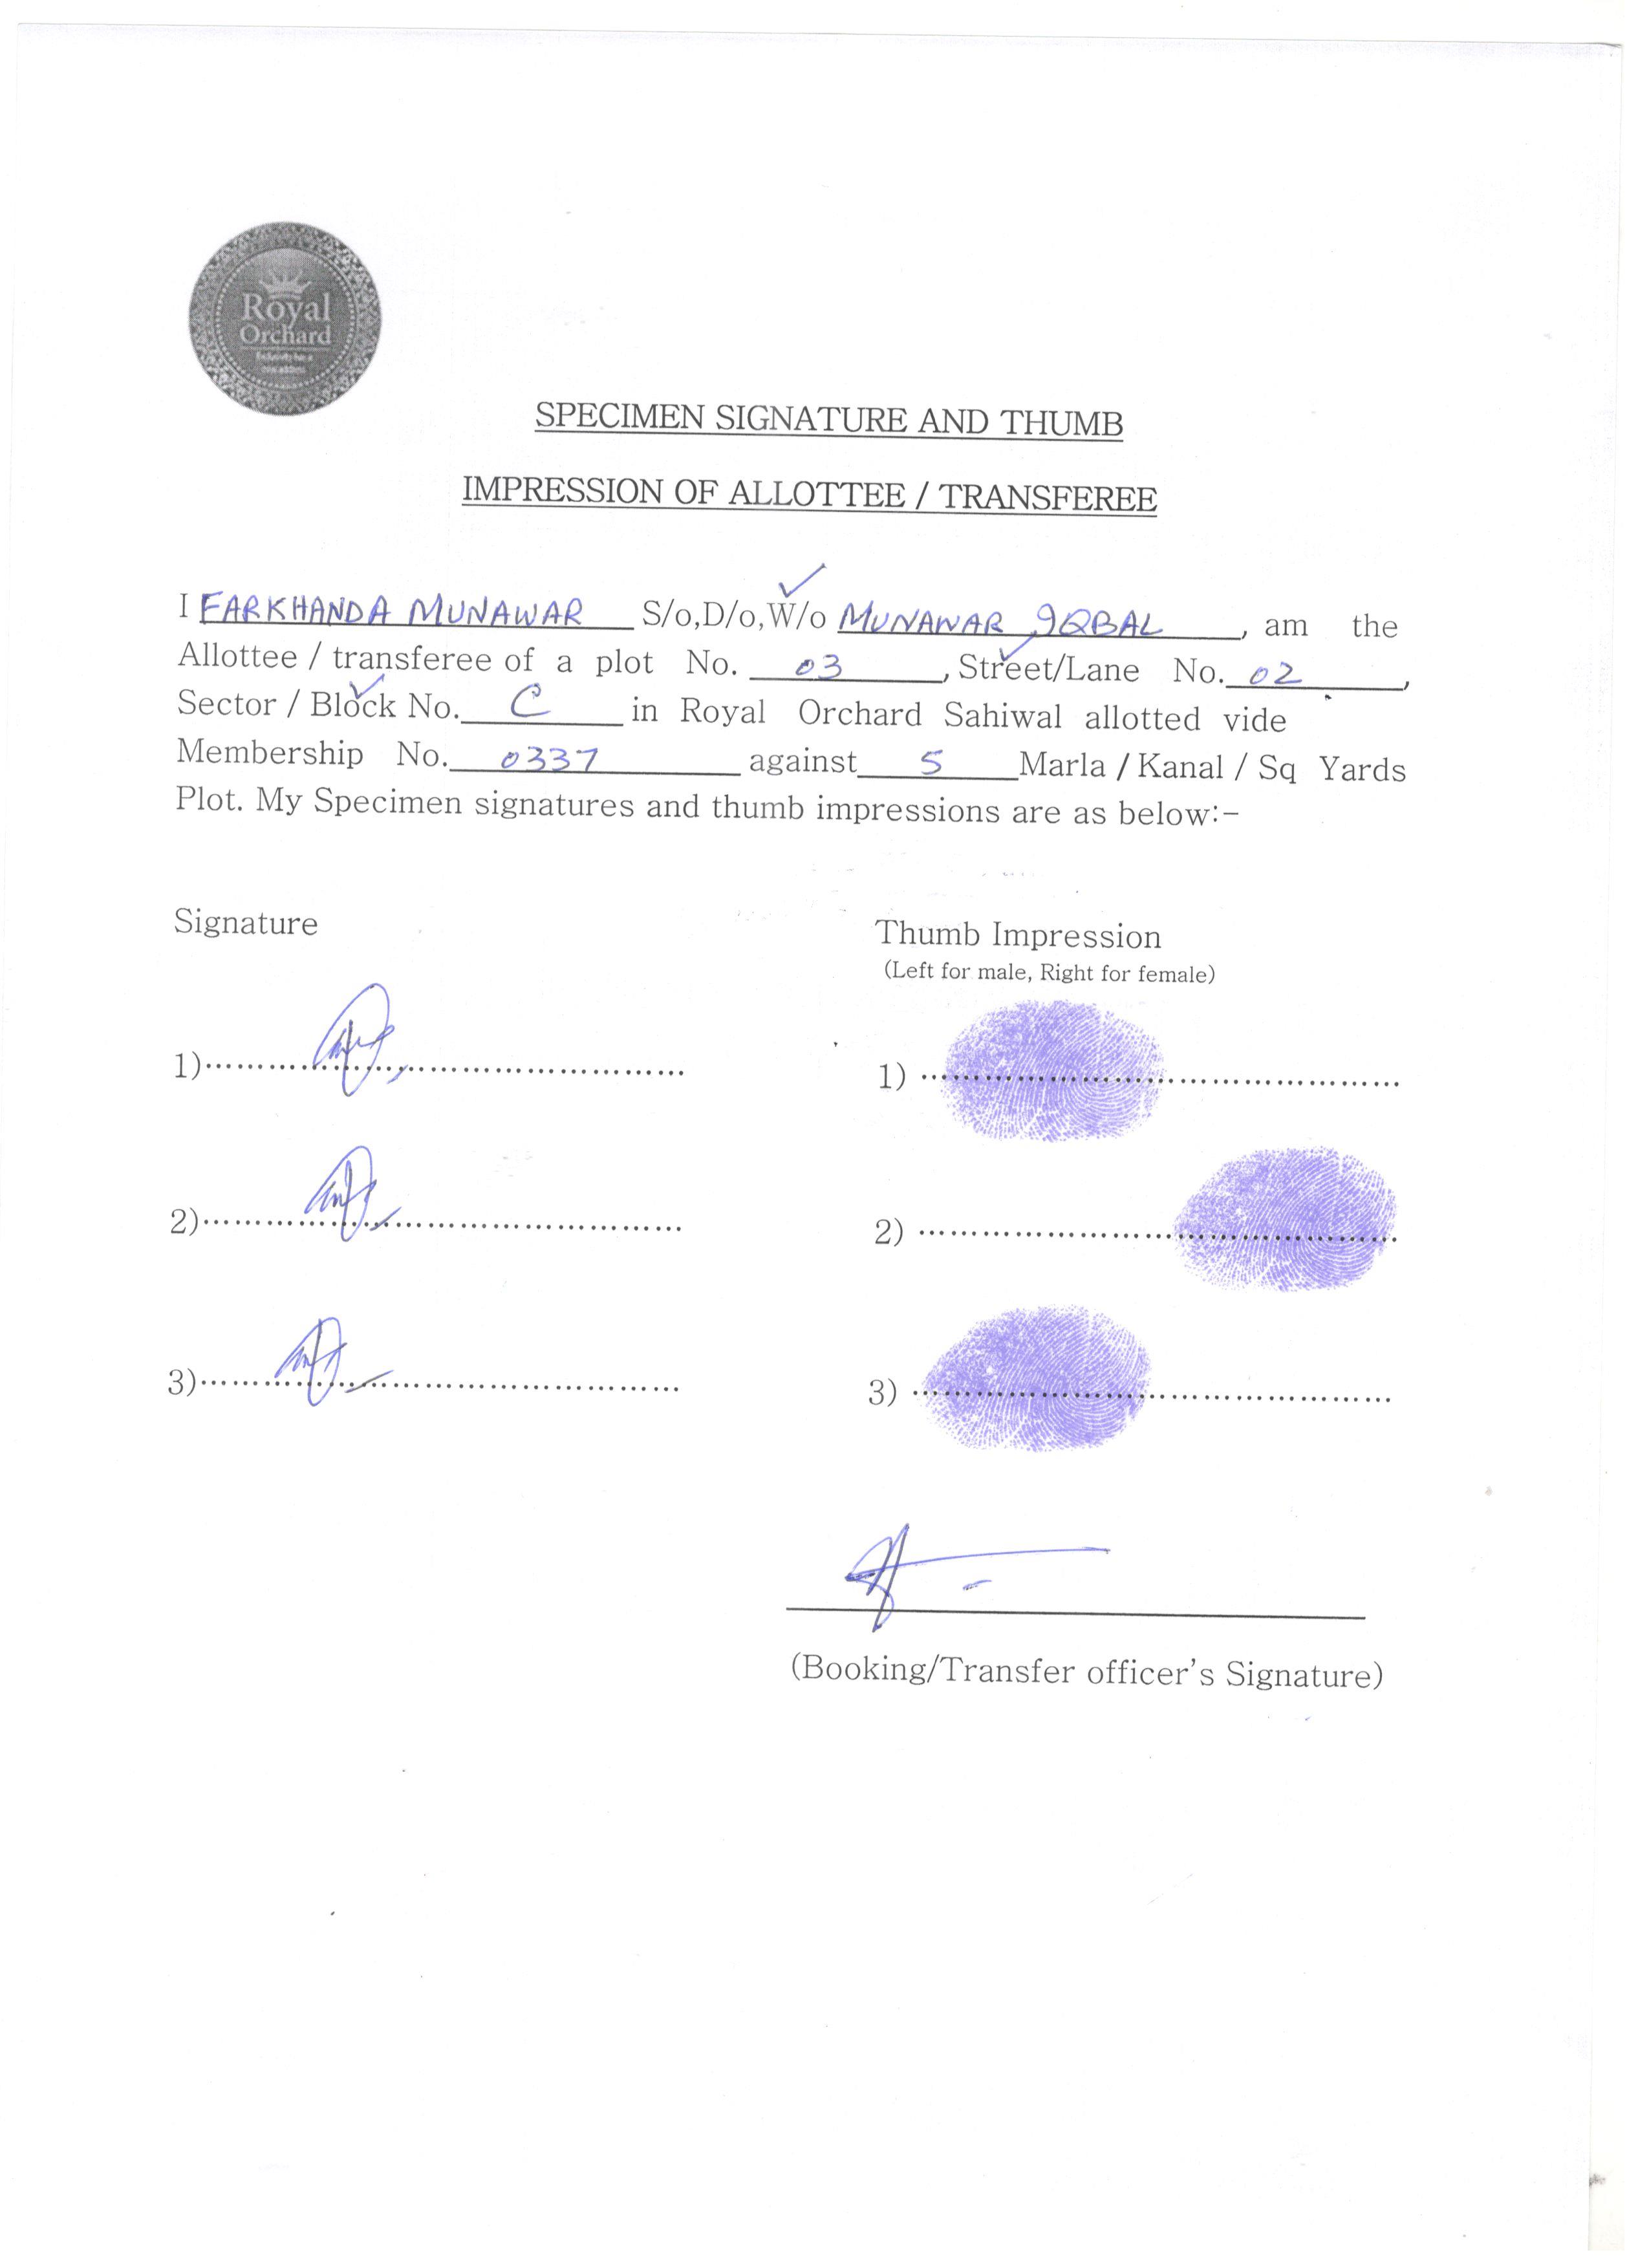 Royal
Orchard
SPECIMEN SIGNATURE AND THUMB
IMPRESSION OF ALLOTTEE / TRANSFEREE
I FARKHANDA MUNAWAR S/o,D/o,W/o MUNAWAR IQBAL, am the
Allottee / transferee of a plot No. 03, Street/Lane No. 02,
Sector / Block No. C in Royal Orchard Sahiwal allotted vide
Membership No. 0337 against 5 Marla / Kanal / Sq Yards
Plot. My Specimen signatures and thumb impressions are as below:-
Signature
Thumb Impression
(Left for male, Right for female)
1)
1)
2)
2)
3)
3)
(Booking/Transfer officer's Signature)